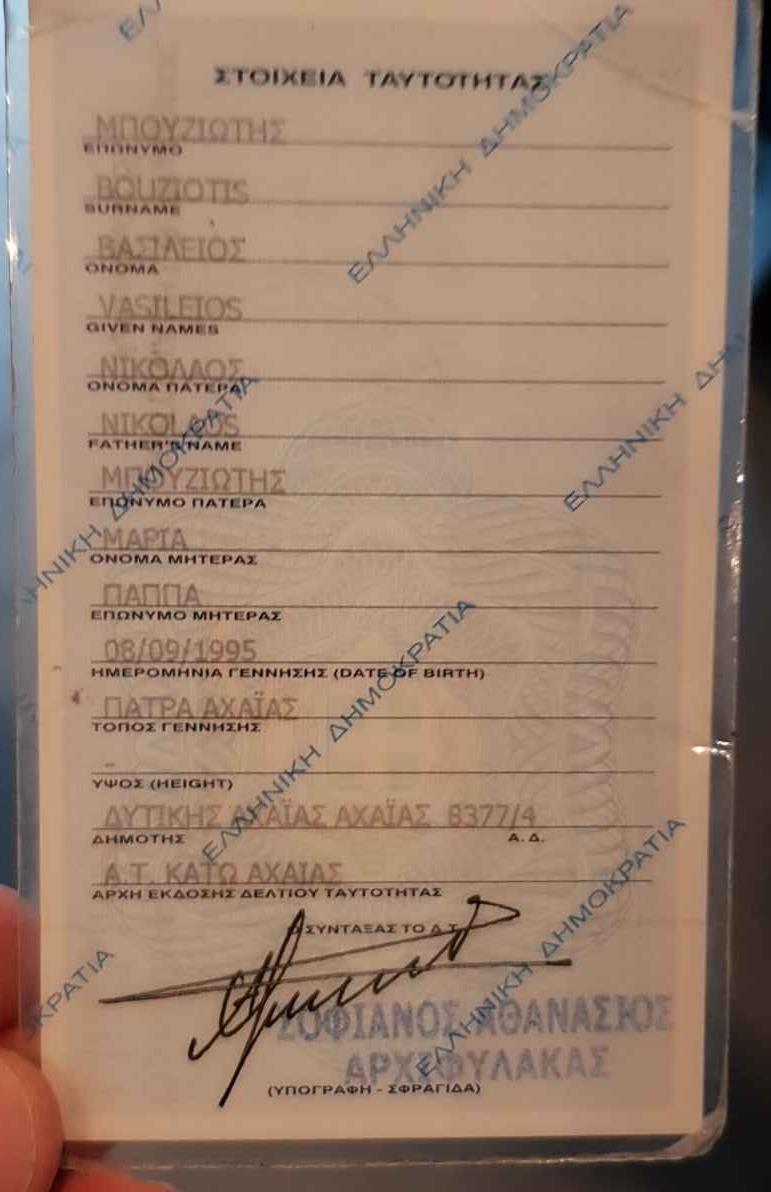 ΣΤΟΙΧΕΙΑ ΤΑΥΤΟΤΗΤΑΣ
ΜΠΟΥΖΙΩΤΗΣ
ΕΠΩΝΥΜΟ
BOUZIOTIS
SURNAME
ΒΑΣΙΛΕΙΟΣ
ΟΝΟΜΑ
VASILEIOS
GIVEN NAMES
ΝΙΚΟΛΑΟΣ
ΟΝΟΜΑ ΠΑΤΕΡΑ
NIKOLAOS
FATHER'S NAME
ΜΠΟΥΖΙΩΤΗΣ
ΕΠΩΝΥΜΟ ΠΑΤΕΡΑ
ΜΑΡΙΑ
ΟΝΟΜΑ ΜΗΤΕΡΑΣ
ΠΑΠΠΑ
ΕΠΩΝΥΜΟ ΜΗΤΕΡΑΣ
08/09/1995
ΗΜΕΡΟΜΗΝΙΑ ΓΕΝΝΗΣΗΣ (DATE OF BIRTH)
ΠΑΤΡΑ ΑΧΑΪΑΣ
ΤΟΠΟΣ ΓΕΝΝΗΣΗΣ
-
ΥΨΟΣ (HEIGHT)
ΔΥΤΙΚΗΣ ΑΧΑΪΑΣ ΑΧΑΪΑΣ 8377/4
ΔΗΜΟΤΗΣ Α.Δ.
Α.Τ. ΚΑΤΩ ΑΧΑΙΑΣ
ΑΡΧΗ ΕΚΔΟΣΗΣ ΔΕΛΤΙΟΥ ΤΑΥΤΟΤΗΤΑΣ
Ο ΣΥΝΤΑΞΑΣ ΤΟ Δ.Τ.
ΣΟΦΙΑΝΟΣ ΑΘΑΝΑΣΙΟΣ
ΑΡΧΙΦΥΛΑΚΑΣ
(ΥΠΟΓΡΑΦΗ - ΣΦΡΑΓΙΔΑ)
ΕΛΛΗΝΙΚΗ ΔΗΜΟΚΡΑΤΙΑ
ΕΛΛΗΝΙΚΗ ΔΗΜ
ΗΝΙΚΗ ΔΗΜΟΚΡΑΤΙΑ
ΕΛΛΗΝΙΚΗ ΔΗΜΟΚΡΑΤΙΑ
ΕΛΛΗΝΙΚΗ ΔΗΜΟΚΡΑΤΙΑ
ΚΡΑΤΙΑ